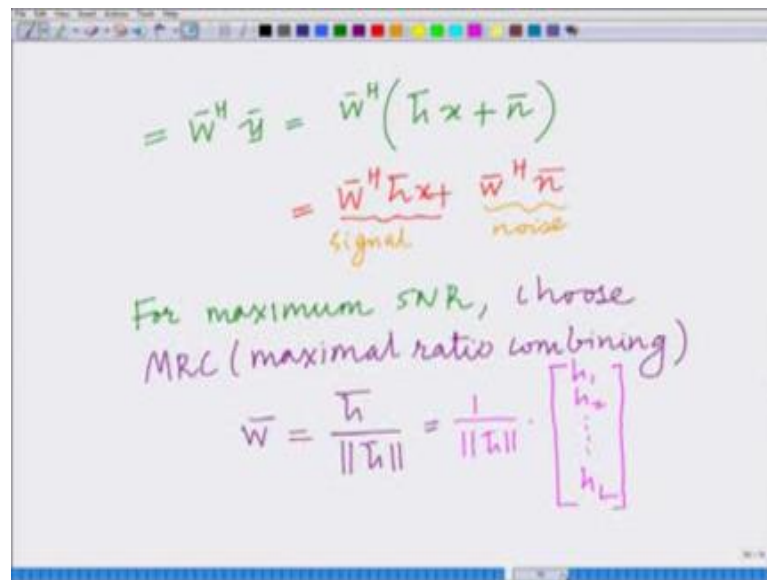 = w̄ᴴ ȳ = w̄ᴴ (h̄x + n̄)
= w̄ᴴ h̄x + w̄ᴴ n̄
signal noise
For maximum SNR, choose
MRC (maximal ratio combining)
w̄ = h̄ / ||h̄|| = 1 / ||h̄|| · [h₁ h₂ ⋮ h_L]